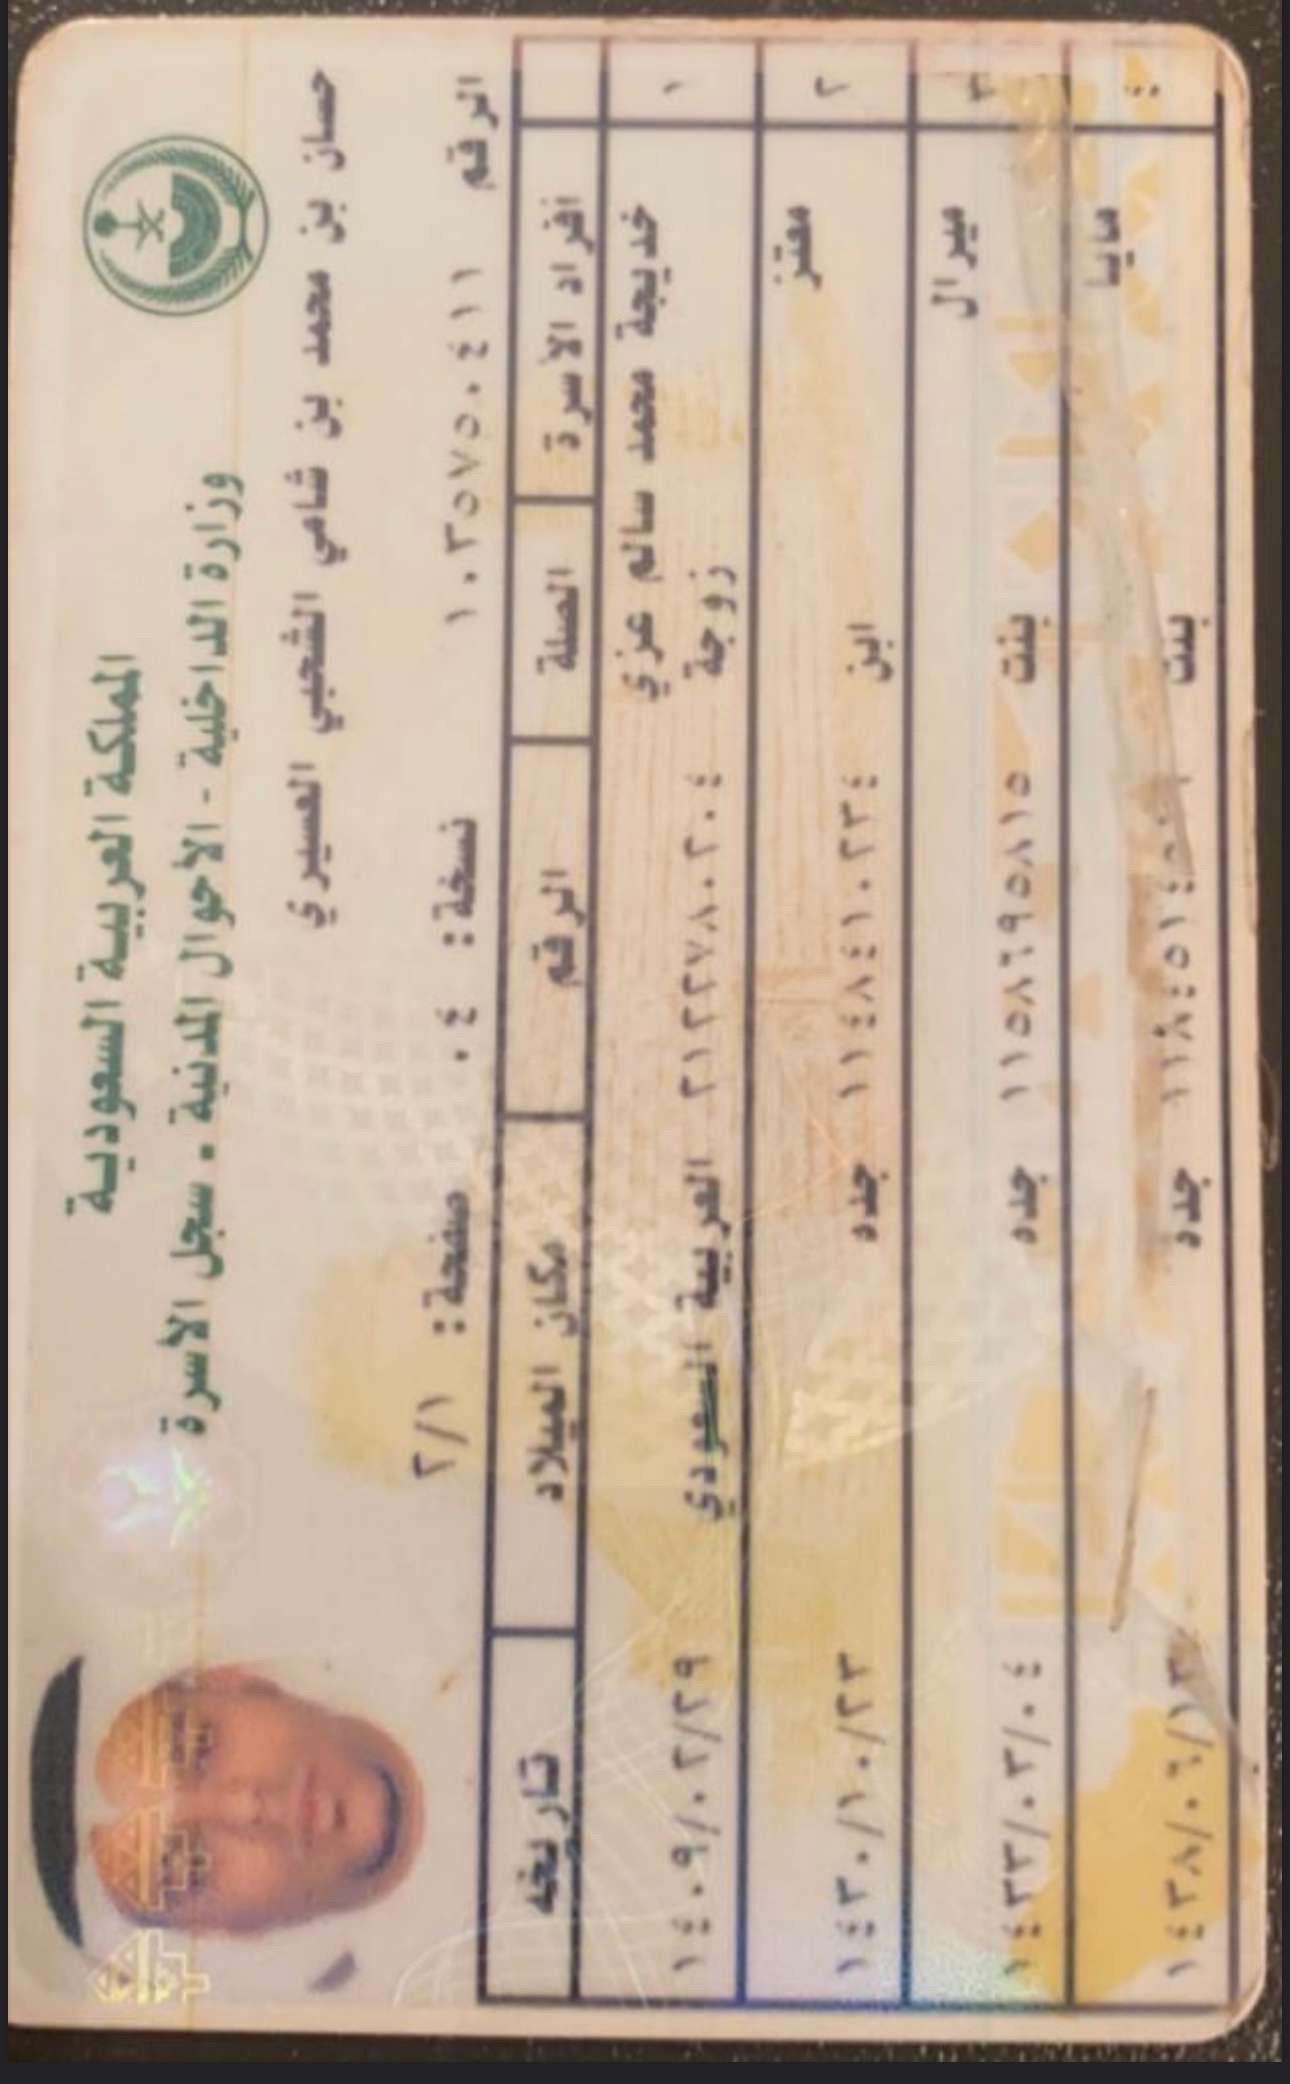 المملكة العربية السعودية
وزارة الداخلية - الأحوال المدنية . سجل الأسرة
حسان بن محمد بن شامي الشحبي العسيري
الرقم ١٠٣٥٧٥٠٤١١ نسخة: ٠٤ صفحة: ٢/١
افراد الأسرة الصلة الرقم مكان الميلاد تاريخه
١ خديجة محمد سالم عزي
زوجة ٢١٢٢٧٨٠٢٠٤ العربية السعودي ١٤٠٩/٠٢/٢٩
٢ معتز
ابن ١١٤٨٤١٠٢٣٤ جده ١٤٣٠/١٠/٢٣
٣ ميرال
بنت ١١٥٨٦٩٥٨١٥ جده ١٤٣٣/٠٣/٠٤
٤ مايا
بنت جده